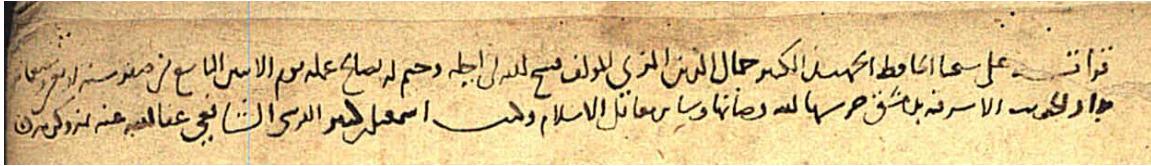 على شيخنا الحافظ الجهبذ الكبير جمال الدين المزي المؤلف فسح الله في اجله وختم له بصالح عمله يوم الاثنين التاسع من صفر سنة
بدار الحديث الاشرفية بدمشق حرسها الله وصانها وسائر معاقل الاسلام وكتب اسمعيل بن كثير القرشي الشافعي عفا الله عنه بمنه وكرمه